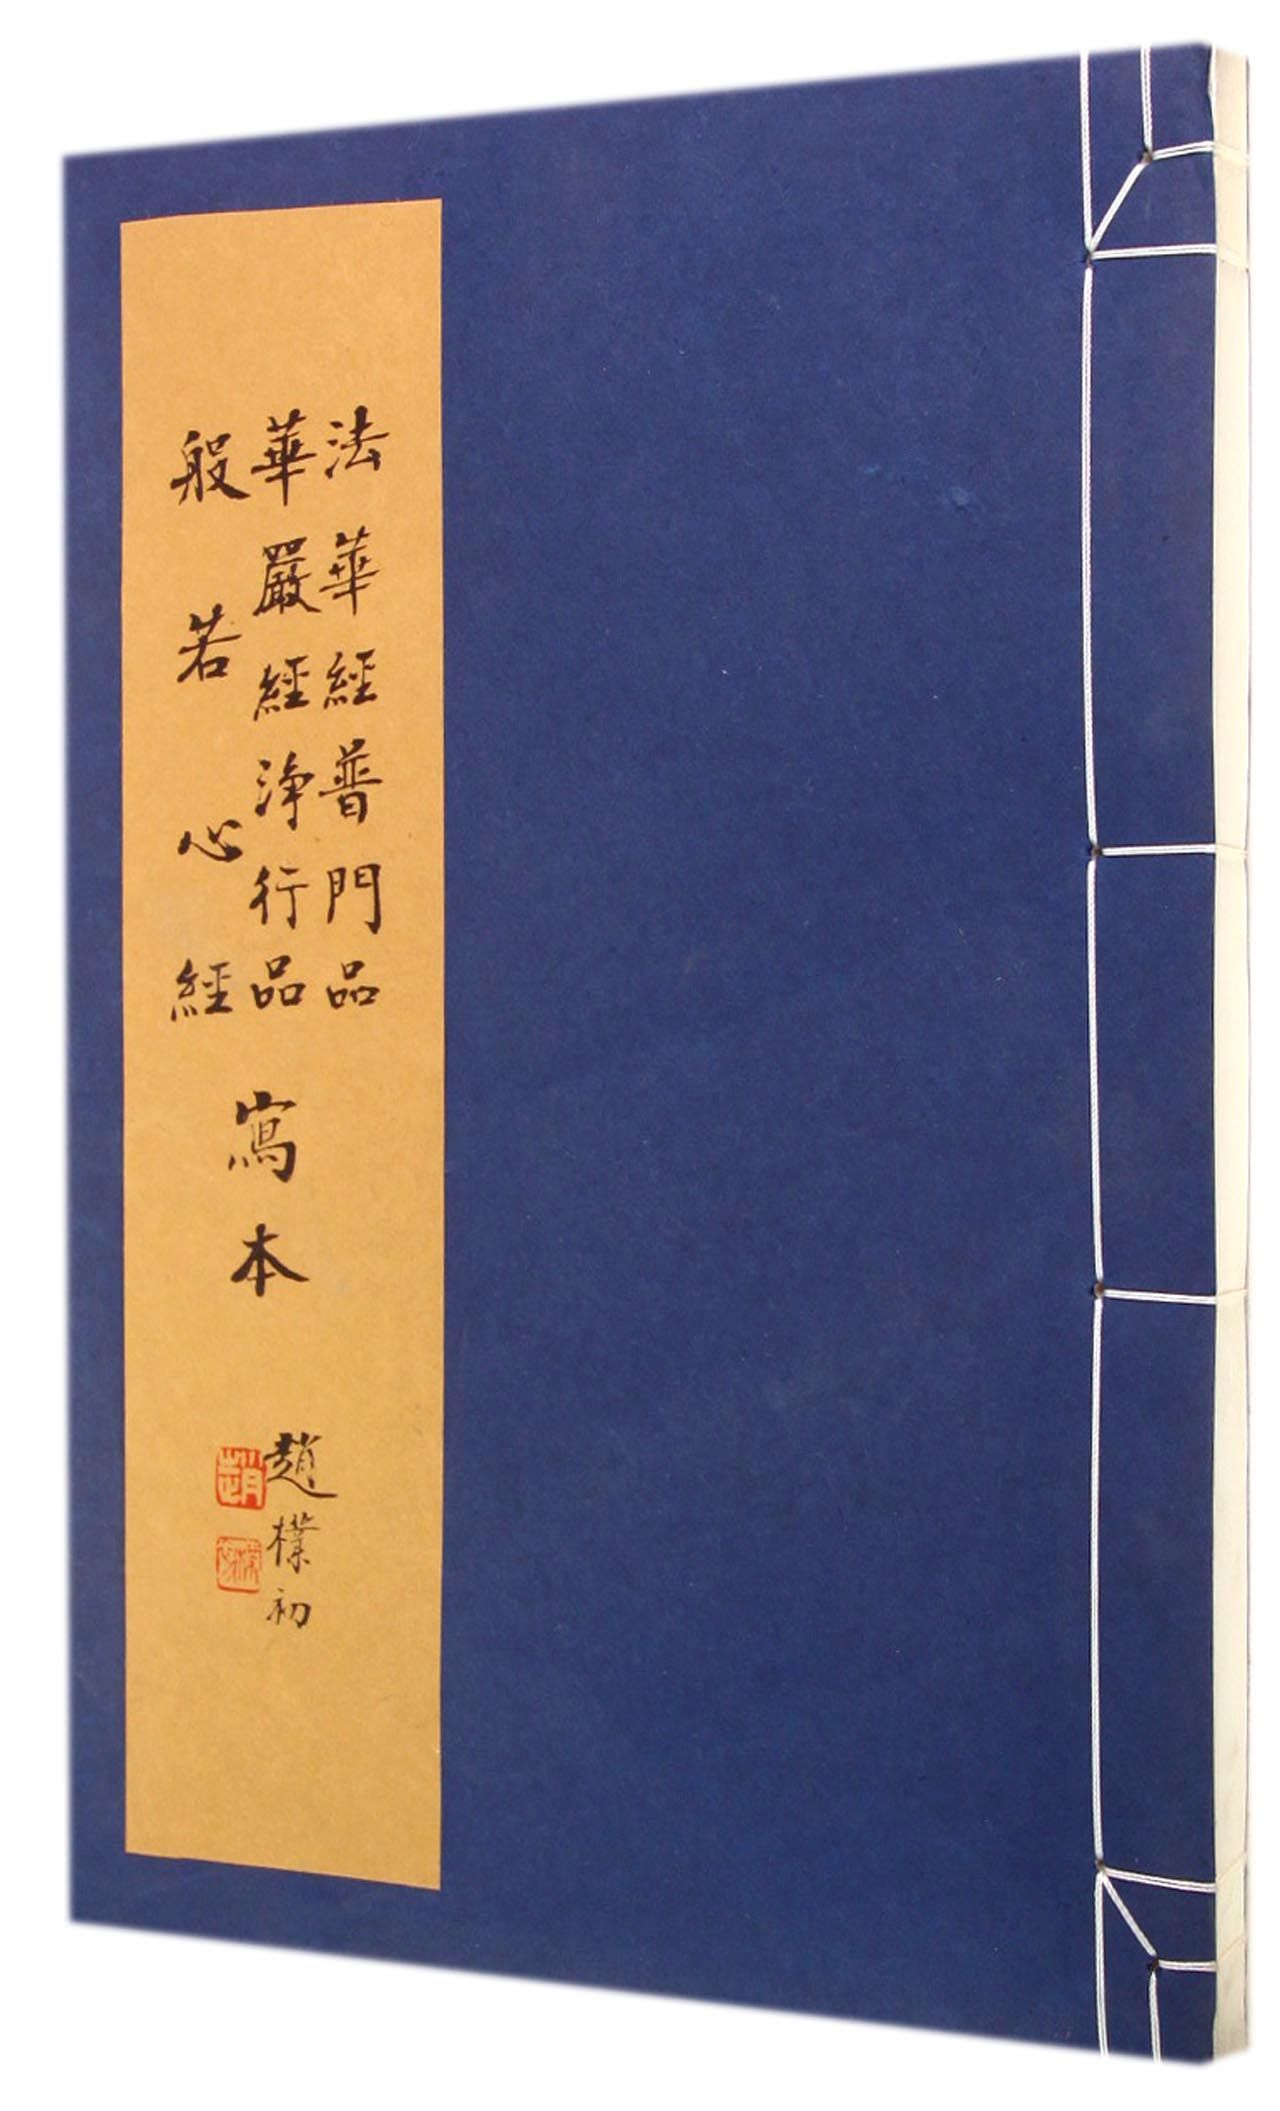 法華經普門品
華嚴經淨行品
般若心經
寫本
趙樸初
趙
樸初